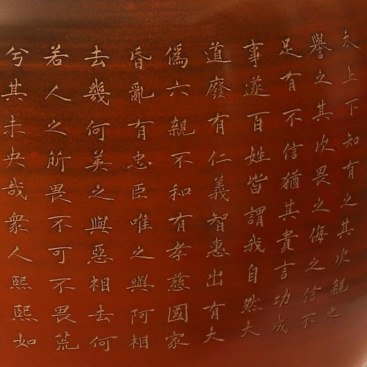 太上下知有之其次親之
譽之其次畏之侮之信不
足有不信猶其貴言功成
事遂百姓皆謂我自然大
道廢有仁義智惠出有大
僞六親不和有孝慈國家
昏亂有忠臣唯之與阿相
去幾何美之與惡相去何
若人之所畏不可不畏荒
兮其未央哉衆人熙熙如